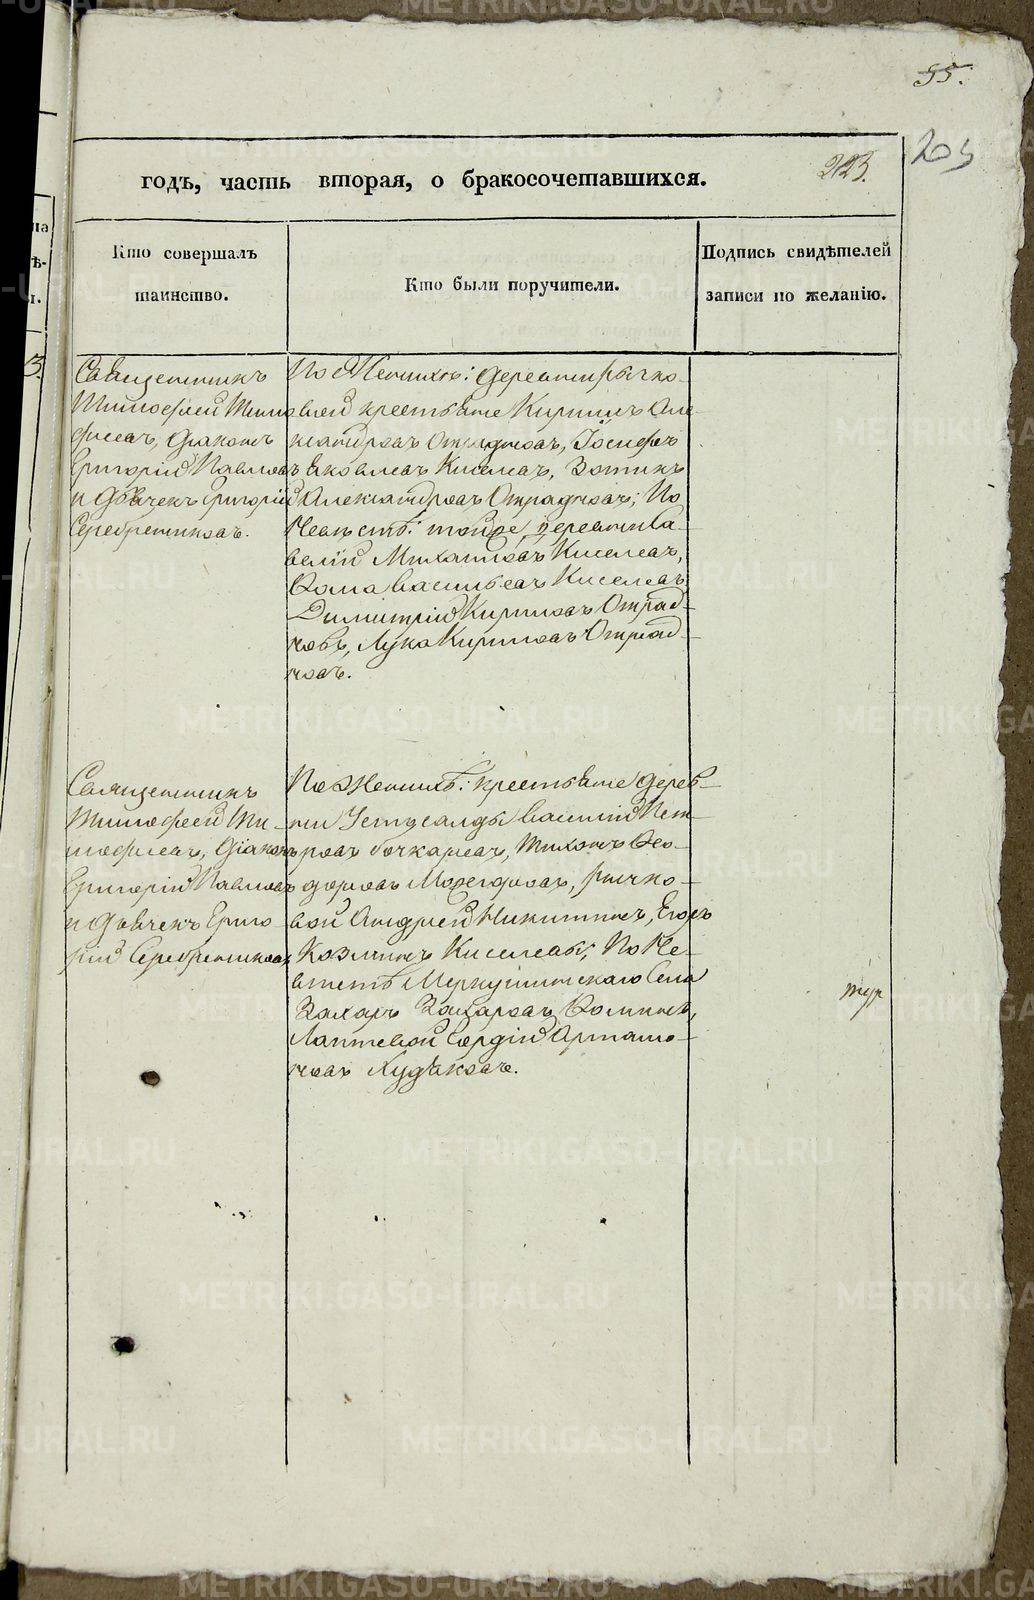 55.
203
223.
годъ, часть вторая, о бракосочетавшихся.
Кто совершалъ
таинство.
Кто были поручители.
Подпись свидѣтелей
записи по желанію.
Священникъ
Тимофей Тимо
феевъ, Діаконъ
Григорій Павловъ
и Дьячекъ Григорій
Серебренниковъ.
По Женихѣ: деревни Рычко-
вой крестьяне Кирилъ Але-
ксандровъ Отрадновъ, Іосифъ
Яковлевъ Киселевъ, Зотикъ
Александровъ Отрадновъ; По
Невѣстѣ: тойже деревни Са-
велій Михайловъ Киселевъ,
Ѳома Васильевъ Киселевъ
Димитрій Кириловъ Отрад-
новъ, Лука Кириловъ Отрад-
новъ.
Священникъ
Тимофей Ти-
мофеевъ, Діаконъ
Григорій Павловъ
и Дьячекъ Григо
рій Серебренниковъ
По Женихѣ: крестьяне дерев-
ни Устусалды Василій Пет-
ровъ Бочкаревъ, Тихонъ Ѳео-
доровъ Рычко-
вой Андрей Никитинъ, Егоръ
Козминъ Киселевы; По Не-
вѣстѣ Меркушинскаго Села
Захаръ Захаровъ Ѳоминъ,
Лаптевой Сергій Артамо-
новъ Худяковъ.
METRIKI.GASO-URAL.RU